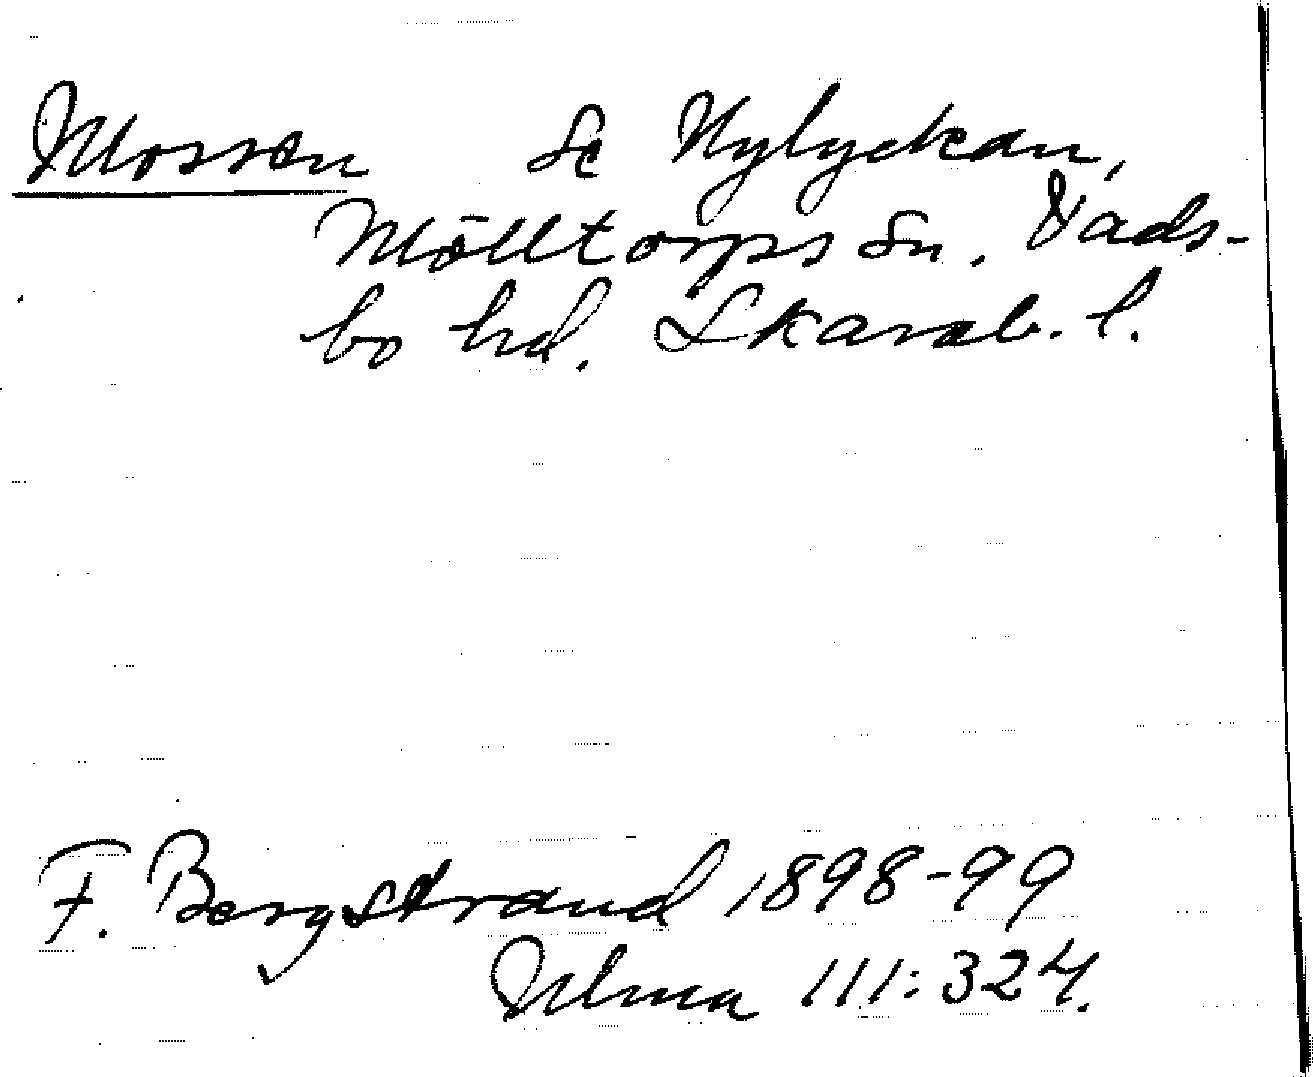 Mossen Se Nylyckan,
Mölltorps sn. Vads-
bo hd. Skarab. l.
F. Bergstrand 1898-99
Ulma 111:324.